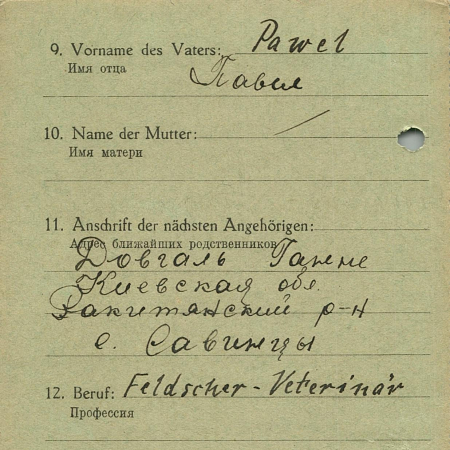 9. Vorname des Vaters: Pawel
Имя отца Павел
10. Name der Mutter: —
Имя матери
11. Anschrift der nächsten Angehörigen:
Адрес ближайших родственников
Довгаль Ганне
Киевская обл.
Ракитянский р-н
с. Савинцы
12. Beruf: Feldscher-Veterinär
Профессия